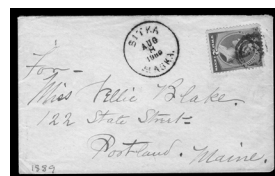 SITKA
AUG
ALASKA.
For—
Miss Nellie Blake.
122 State Street
Portland. Maine.
1889